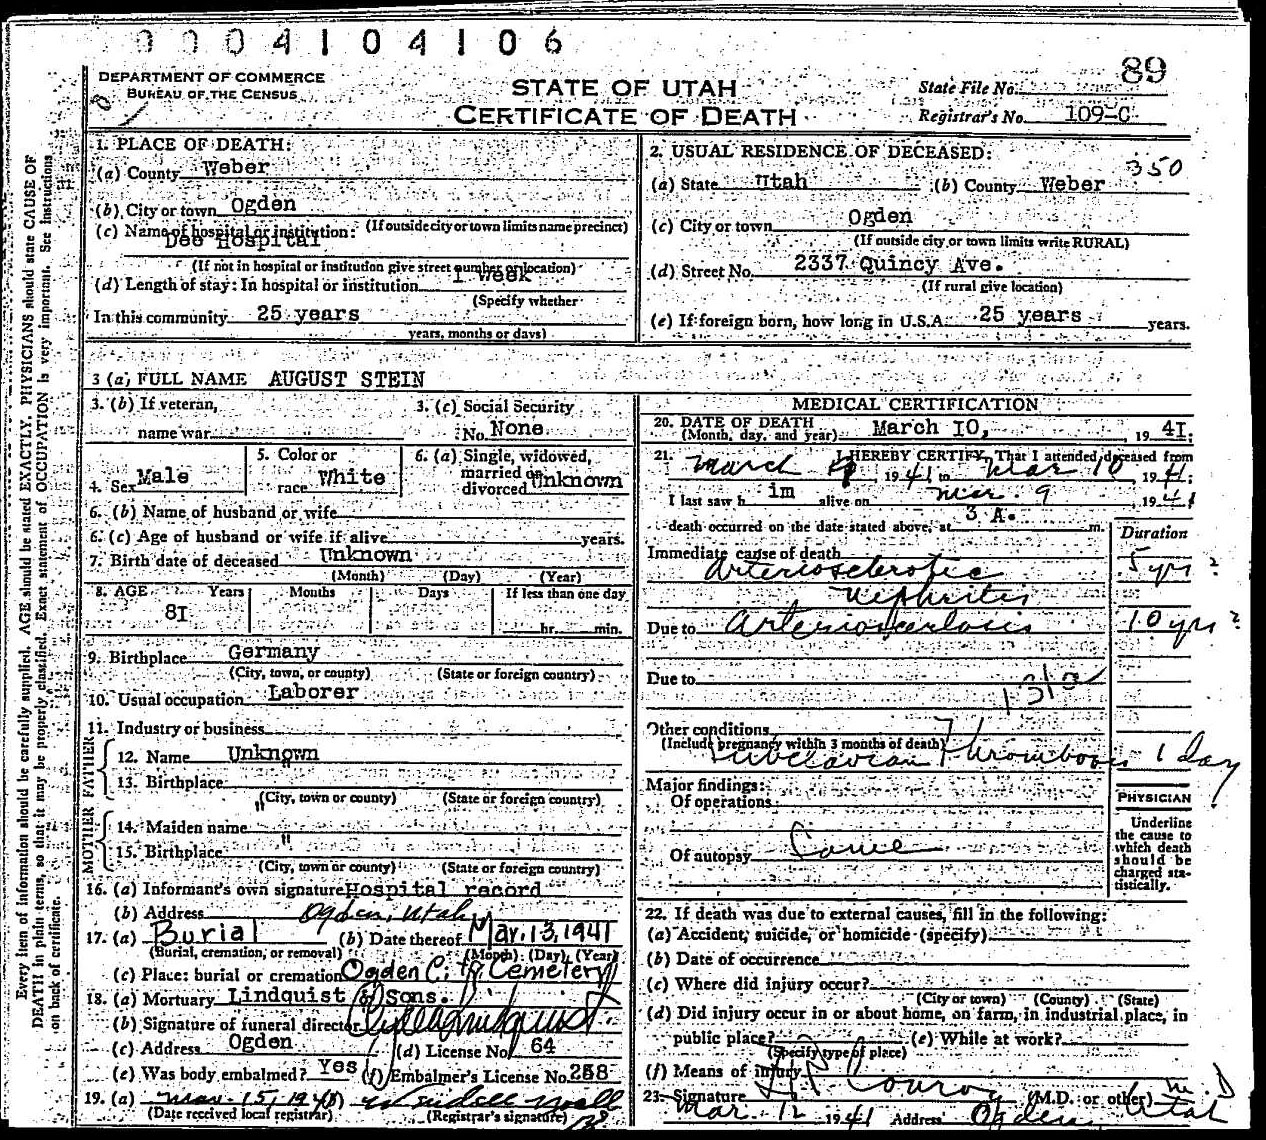 0004104106
89
DEPARTMENT OF COMMERCE
BUREAU OF THE CENSUS
STATE OF UTAH
CERTIFICATE OF DEATH
State File No.
Registrar's No. 109-C
1. PLACE OF DEATH:
(a) County Weber
(b) City or town Ogden
(If outside city or town limits name precinct)
(c) Name of hospital or institution:
Dee Hospital
(If not in hospital or institution give street number or location)
(d) Length of stay: In hospital or institution 1 week
(Specify whether
In this community 25 years
years, months or days)
2. USUAL RESIDENCE OF DECEASED:
350
(a) State Utah (b) County Weber
(c) City or town Ogden
(If outside city or town limits write RURAL)
(d) Street No. 2337 Quincy Ave.
(If rural give location)
(e) If foreign born, how long in U.S.A. 25 years years.
3 (a) FULL NAME AUGUST STEIN
3. (b) If veteran,
name war
3. (c) Social Security
No. None
4. Sex Male
5. Color or
race White
6. (a) Single, widowed,
married or
divorced Unknown
6. (b) Name of husband or wife
6. (c) Age of husband or wife if alive years.
7. Birth date of deceased Unknown
(Month) (Day) (Year)
8. AGE Years Months Days If less than one day
81
hr. min.
9. Birthplace Germany
(City, town, or county) (State or foreign country)
10. Usual occupation Laborer
11. Industry or business
FATHER
12. Name Unknown
13. Birthplace "
(City, town or county) (State or foreign country)
MOTHER
14. Maiden name "
15. Birthplace
(City, town or county) (State or foreign country)
16. (a) Informant's own signature Hospital record
(b) Address Ogden, Utah
17. (a) Burial (b) Date thereof Mar. 13, 1941
(Burial, cremation, or removal) (Month) (Day) (Year)
(c) Place: burial or cremation Ogden City Cemetery
18. (a) Mortuary Lindquist & Sons.
(b) Signature of funeral director
(c) Address Ogden (d) License No. 64
(e) Was body embalmed? Yes (f) Embalmer's License No. 258
19. (a) Mar. 15, 194
(Date received local registrar) (Registrar's signature)
MEDICAL CERTIFICATION
20. DATE OF DEATH
(Month, day, and year) March 10, 1941;
21. I HEREBY CERTIFY, That I attended deceased from
March 1941 to Mar 10 1941;
I last saw him alive on Mar. 9 1941
death occurred on the date stated above, at 3 A. m.
Duration
Immediate cause of death
Arteriosclerotic 5 yr ?
Nephritis
Due to Arteriosclerosis 10 yrs ?
Due to
131a
Other conditions
(Include pregnancy within 3 months of death)
Subclavian Thrombosis 1 day
Major findings:
Of operations
Of autopsy Same
PHYSICIAN
Underline
the cause to
which death
should be
charged sta-
tistically.
22. If death was due to external causes, fill in the following:
(a) Accident, suicide, or homicide (specify)
(b) Date of occurrence
(c) Where did injury occur?
(City or town) (County) (State)
(d) Did injury occur in or about home, on farm, in industrial place, in
public place? (e) While at work?
(Specify type of place)
(f) Means of injury
23. Signature Conroy (M.D. or other) M D
Mar. 12 1941 Address Ogden, Utah
Every item of information should be carefully supplied. AGE should be stated EXACTLY. PHYSICIANS should state CAUSE OF
DEATH in plain terms, so that it may be properly classified. Exact statement of OCCUPATION is very important. See Instructions
on back of certificate.